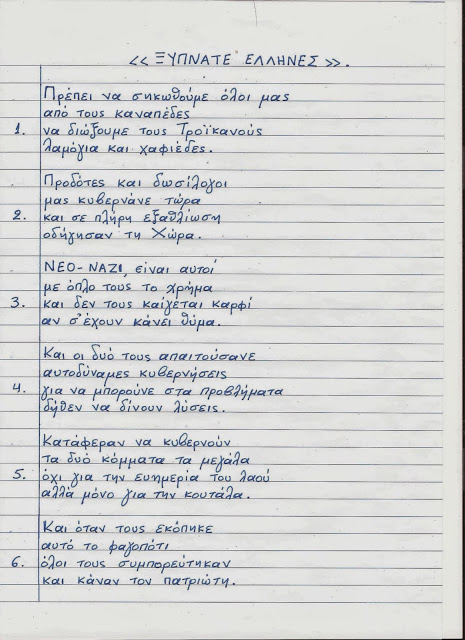 << ΞΥΠΝΑΤΕ ΕΛΛΗΝΕΣ >>.
Πρέπει να σηκωθούμε όλοι μας
από τους καναπέδες
1. να διώξουμε τους Τροϊκανούς
λαμόγια και χαφιέδες.
Προδότες και δωσίλογοι
μας κυβερνάνε τώρα
2. και σε πλήρη εξαθλίωση
οδήγησαν τη Χώρα.
ΝΕΟ-ΝΑΖΙ, είναι αυτοί
με όπλο τους το χρήμα
3. και δεν τους καίγεται καρφί
αν σ' έχουν κάνει θύμα.
Και οι δυό τους απαιτούσανε
αυτοδύναμες κυβερνήσεις
4. για να μπορούνε στα προβλήματα
δήθεν να δίνουν λύσεις.
Κατάφεραν να κυβερνούν
τα δυό κόμματα τα μεγάλα
5. όχι για την ευημερία του λαού
αλλά μόνο για την κουτάλα.
Και όταν τους εκόπηκε
αυτό το φαγοπότι
6. όλοι τους συμπορεύτηκαν
και κάναν τον πατριώτη.